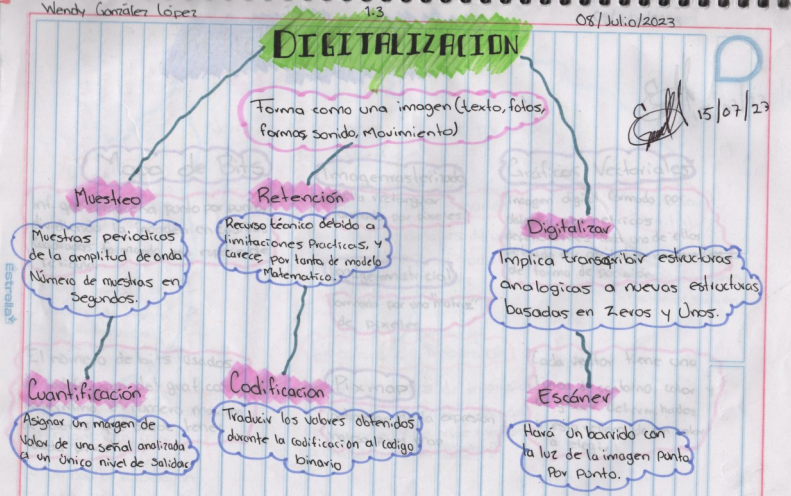 Wendy González López
1.3
08/Julio/2023
DIGITALIZACION
15/07/23
Forma como una imagen (texto, fotos,
formas, sonido, Movimiento)
Muestreo
Muestras periodicos
de la amplitud de onda
Número de muestras en
segundos.
Retención
Recurso técnico debido a
limitaciones Practicas, y
carece por tanto de modelo
Matematico.
Digitalizar
Implica transcribir estructuras
analogicas a nuevas estructuras
basadas en Zeros y Unos.
Cuantificación
Asignar un margen de
Valor de una señal analizada
a un único nivel de salidas
Codificacion
Traducir los valores obtenidos
durante la codificación al codigo
binario
Escáner
Hará un barrido con
la luz de la imagen punto
Por punto.
Estrella